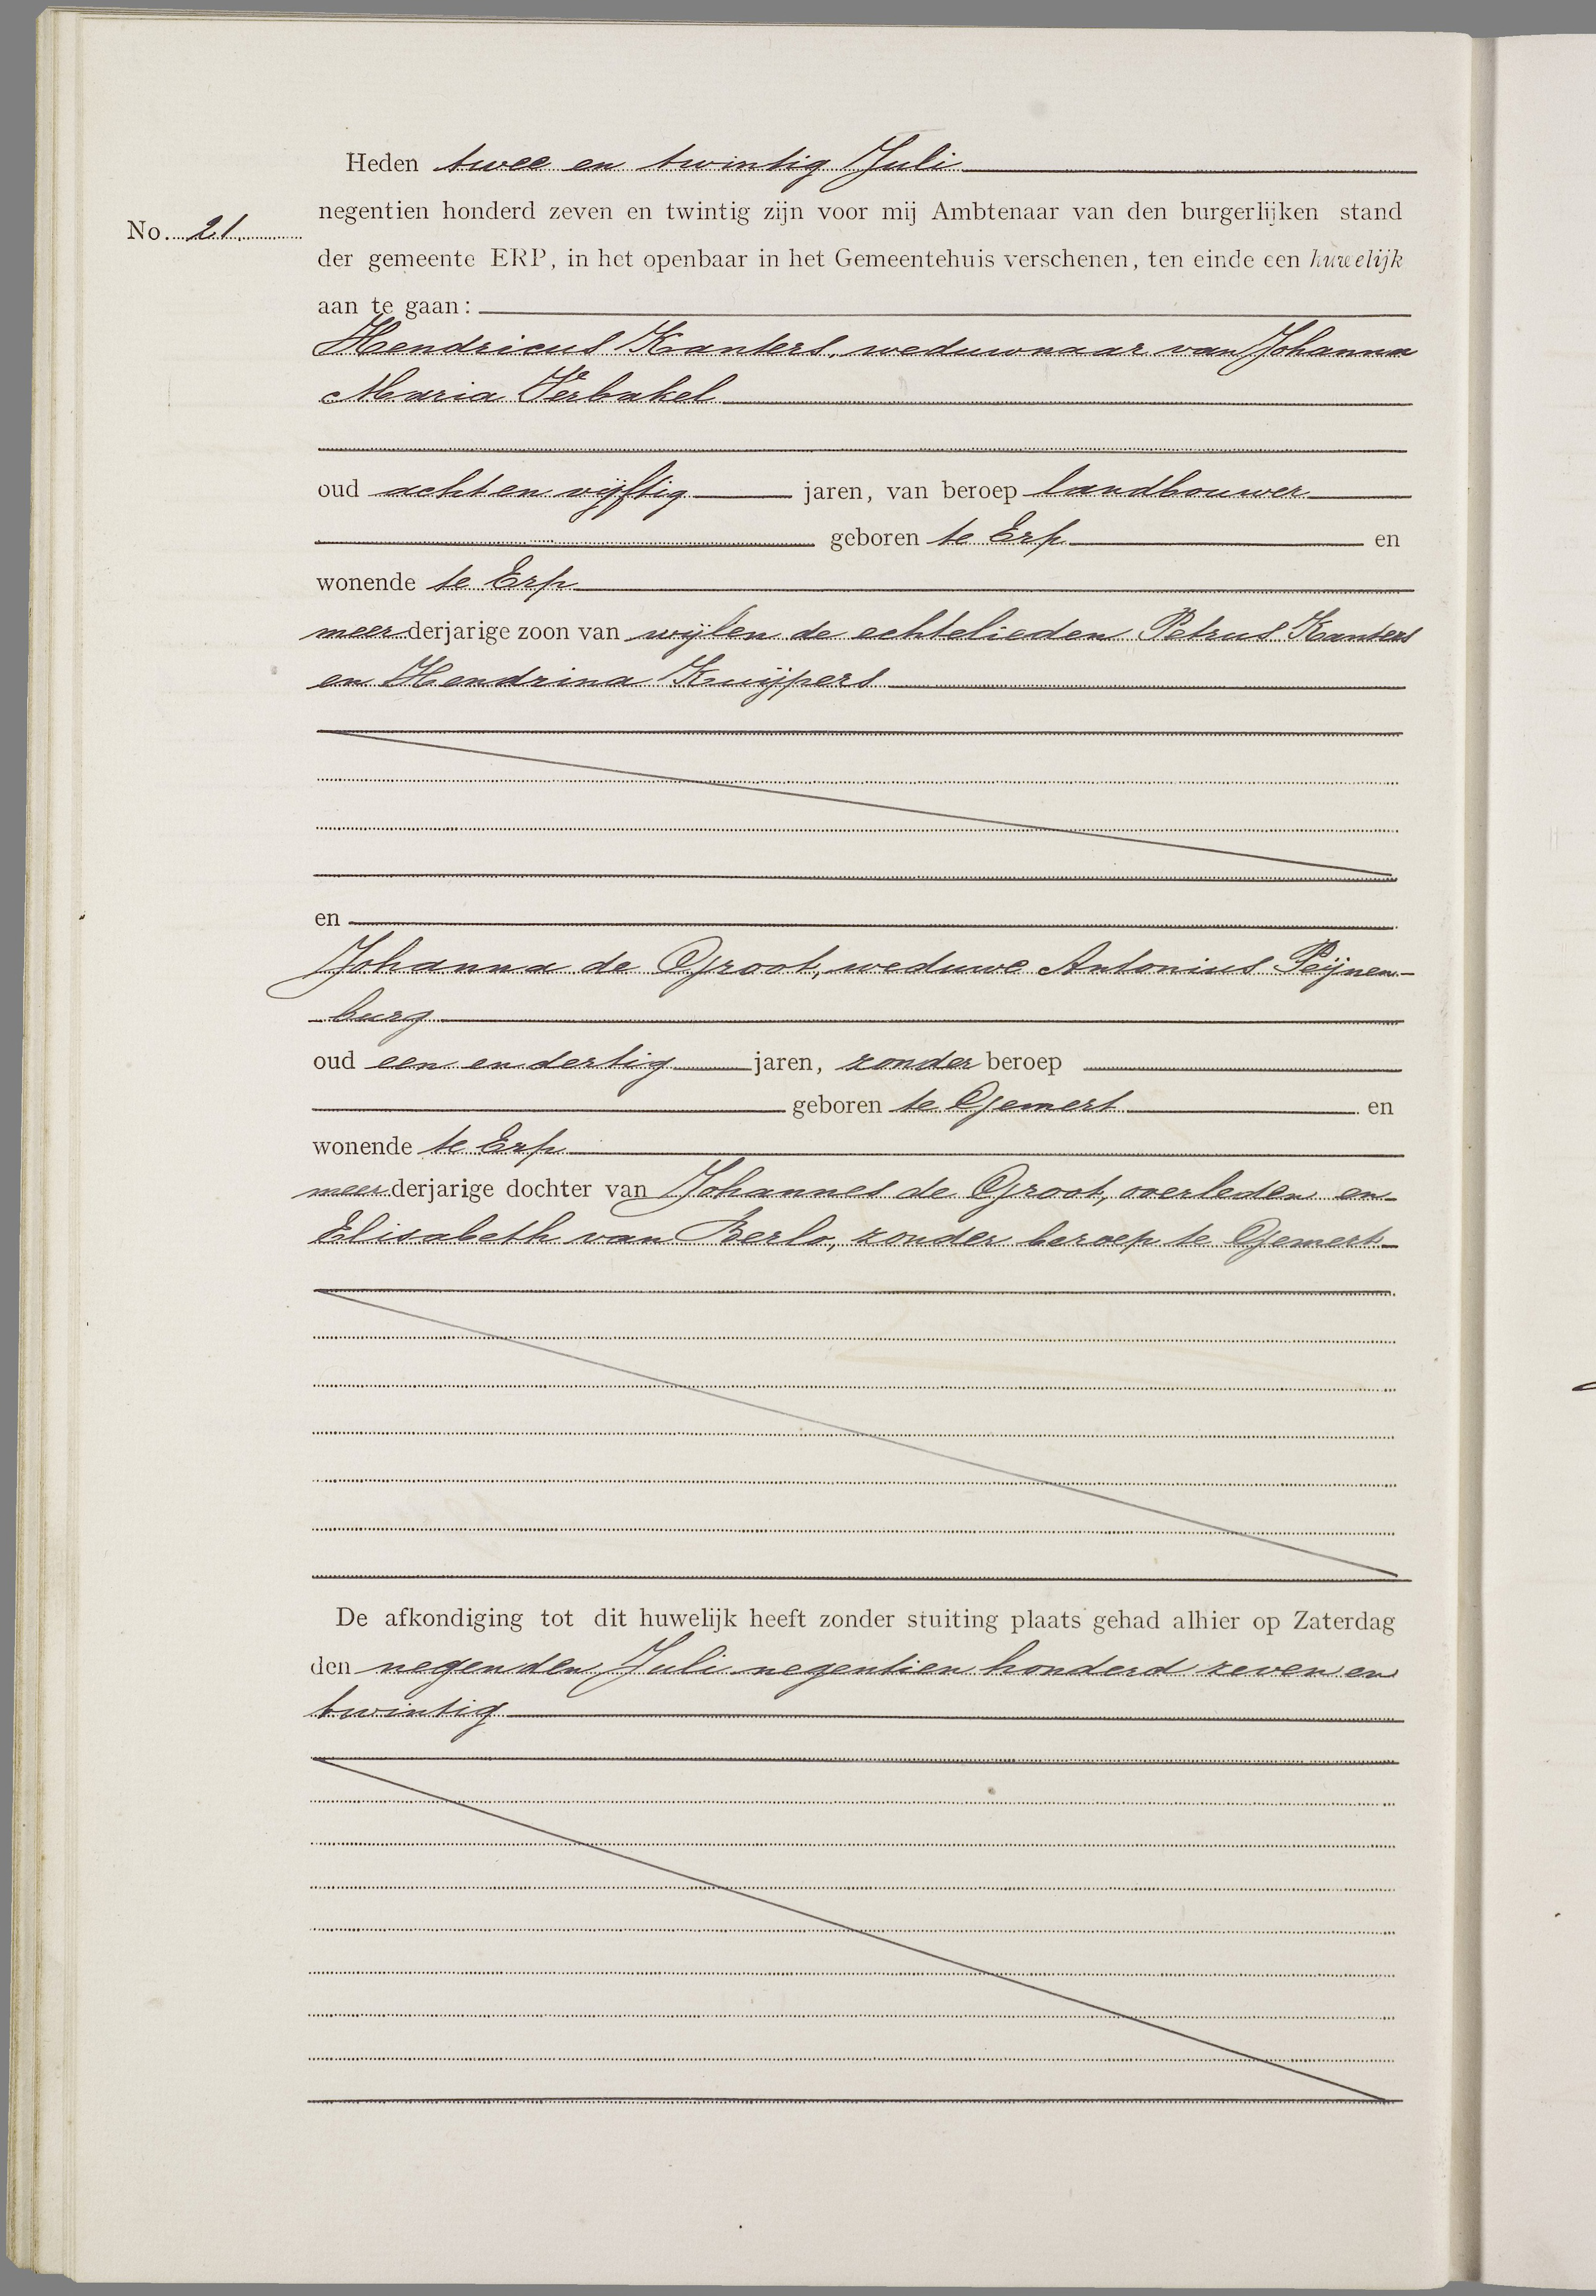 Heden twee en twintig Juli
negentien honderd zeven en twintig zijn voor mij Ambtenaar van den burgerlijken stand
No. 21
der gemeente ERP, in het openbaar in het Gemeentehuis verschenen, ten einde een huwelijk
aan te gaan:
Hendricus Kanters, weduwnaar van Johanna
Maria Verbakel
oud acht en vijftig jaren, van beroep landbouwer
geboren te Erp en
wonende te Erp
meerderjarige zoon van wijlen de echtelieden Petrus Kanters
en Hendrina Kuijpers
en
Johanna de Groot, weduwe Antonius Peijnen-
burg
oud een en dertig jaren, zonder beroep
geboren te Gemert en
wonende te Erp
meerderjarige dochter van Johannes de Groot, overleden en
Elisabeth van Berlo, zonder beroep te Gemert
De afkondiging tot dit huwelijk heeft zonder stuiting plaats gehad alhier op Zaterdag
den negenden Juli negentien honderd zeven en
twintig